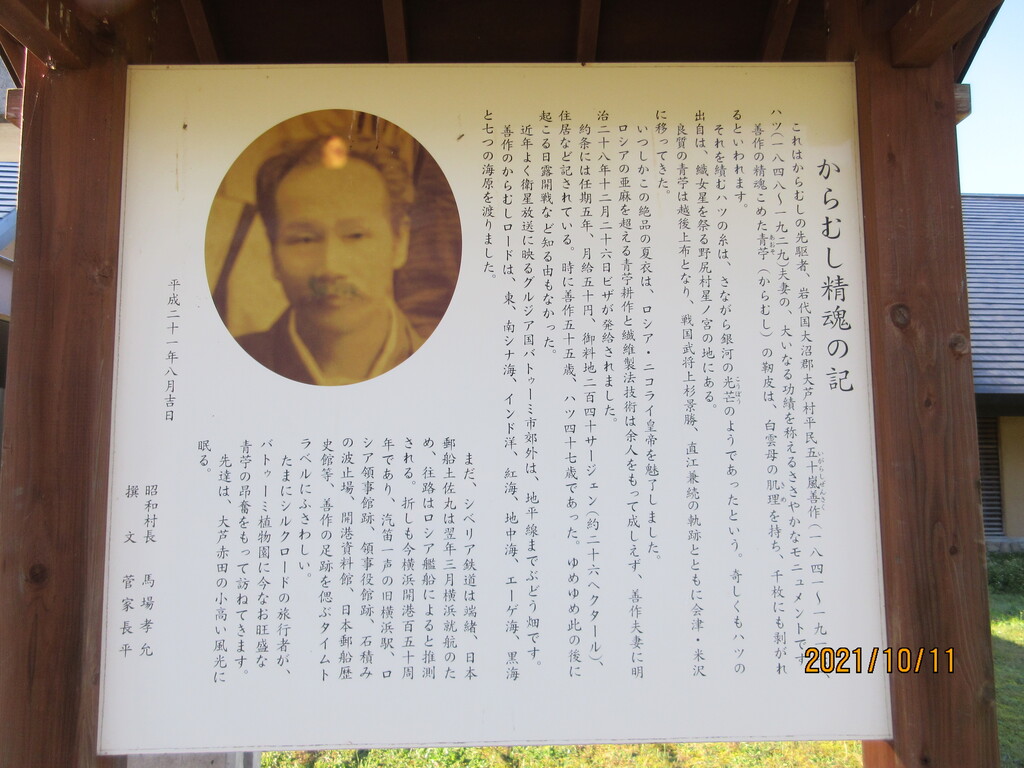 からむし精魂の記
これはからむしの先駆者、岩代国大沼郡大芦村平民五十嵐善作(一八四一～一九一
ハツ(一八四八～一九二九)夫妻の、大いなる功績を称えるささやかなモニュメントです
善作の精魂こめた青苧(からむし)の靭皮は、白雲母の肌理を持ち、千枚にも剥がれ
るといわれます。
それを績むハツの糸は、さながら銀河の光芒のようであったという。奇しくもハツの
出自は、織女星を祭る野尻村星ノ宮の地にある。
良質の青苧は越後上布となり、戦国武将上杉景勝、直江兼続の軌跡とともに会津・米沢
に移ってきた。
いつしかこの絶品の夏衣は、ロシア・ニコライ皇帝を魅了しました。
ロシアの亜麻を超える青苧耕作と繊維製法技術は余人をもって成しえず、善作夫妻に明
治二十八年十二月二十六日ビザが発給されました。
約条には任期五年、月給五十円、御料地二百四十サージェン(約二十六ヘクタール)、
住居など記されている。時に善作五十五歳、ハツ四十七歳であった。ゆめゆめ此の後に
起こる日露開戦など知る由もなかった。
近年よく衛星放送に映るグルジア国バトゥーミ市郊外は、地平線までぶどう畑です。
善作のからむしロードは、東、南シナ海、インド洋、紅海、地中海、エーゲ海、黒海
と七つの海原を渡りました。
まだ、シベリア鉄道は端緒、日本
郵船土佐丸は翌年三月横浜就航のた
め、往路はロシア艦船によると推測
される。折しも今横浜開港百五十周
年であり、汽笛一声の旧横浜駅、ロ
シア領事館跡、領事役館跡、石積み
の波止場、開港資料館、日本郵船歴
史館等、善作の足跡を偲ぶタイムト
ラベルにふさわしい。
たまにシルクロードの旅行者が、
バトゥーミ植物園に今なお旺盛な
青苧の昂奮をもって訪ねてきます。
先達は、大芦赤田の小高い風光に
眠る。
平成二十一年八月吉日
昭和村長 馬場孝允
撰文 菅家長平
2021/10/11